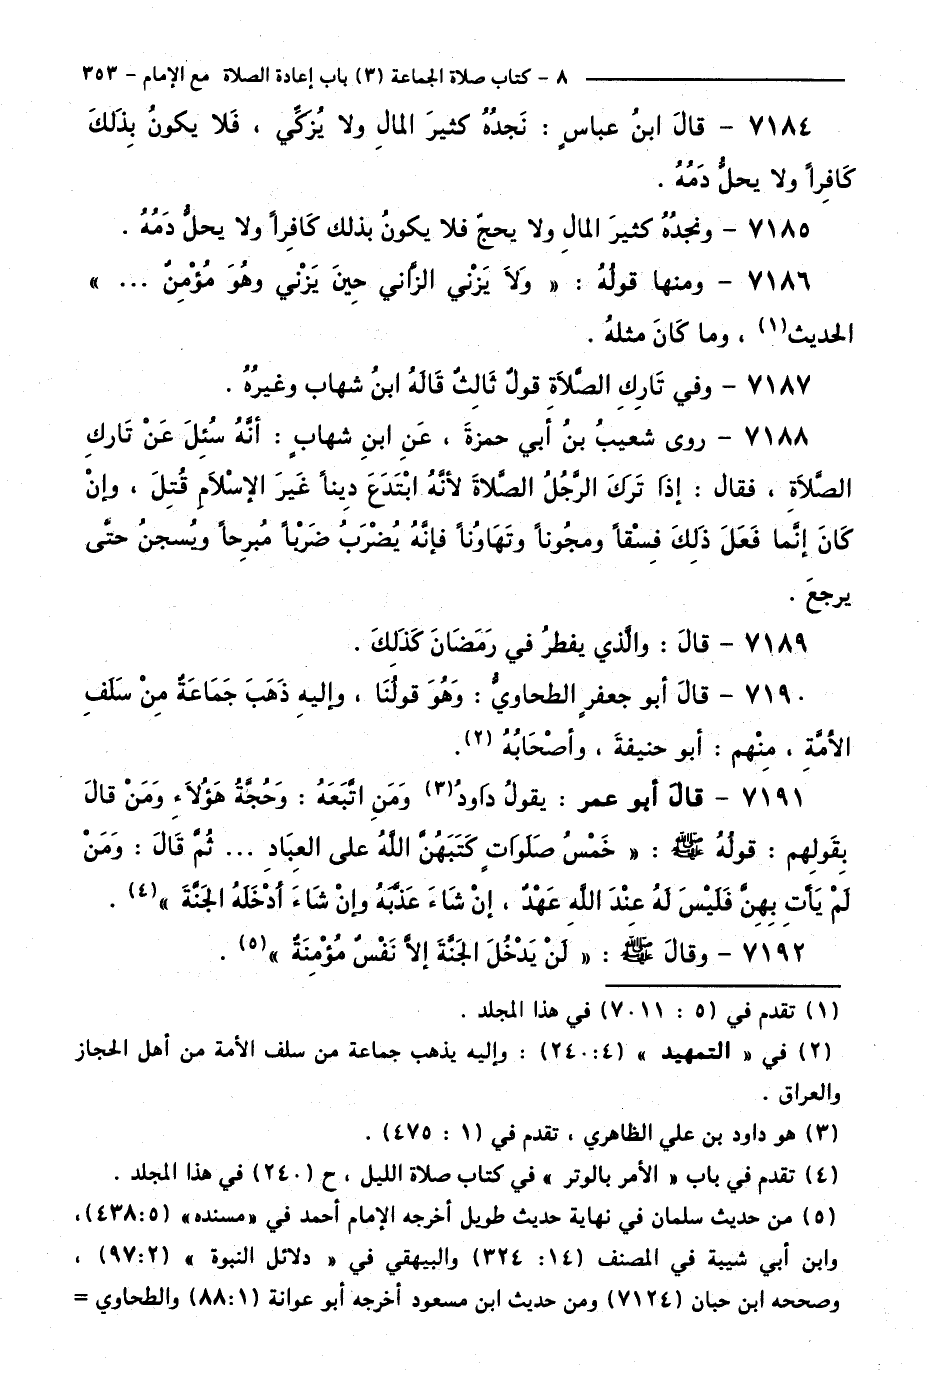 ٨ - كتاب صلاة الجماعة (٣) باب إعادة الصلاة مع الإمام - ٣٥٣
٧١٨٤ - قالَ ابنُ عباسٍ : نَجدُهُ كثيرَ المالِ ولا يُزكِّي ، فَلا يكونُ بِذَلكَ
كَافِراً ولا يحلُّ دَمُهُ .
٧١٨٥ - ونجدُهُ كثيرَ المالِ ولا يحجّ فلا يكونُ بذلك كَافِراً ولا يحلُّ دَمُهُ .
٧١٨٦ - ومنها قولُهُ : « وَلاَ يَزْني الزَّاني حِينَ يَزْني وهُوَ مُؤْمِنٌ ... »
الحديث(١) ، وما كَانَ مثلهُ .
٧١٨٧ - وفي تَارِكِ الصَّلاَةِ قولٌ ثَالِثٌ قَالَهُ ابنُ شهاب وغيرُهُ .
٧١٨٨ - روى شعيبُ بنُ أبي حمزةَ ، عَنِ ابنِ شهابٍ : أنَّهُ سُئلَ عَنْ تَاركِ
الصَّلاَةِ ، فقال : إذَا تَركَ الرَّجُلُ الصَّلاةَ لأنَّهُ ابْتَدَعَ ديناً غَيرَ الإسْلاَمِ قُتلَ ، وإنْ
كَانَ إنَّما فَعَلَ ذَلِكَ فِسْقاً ومجُوناً وتَهَاوُناً فإنَّهُ يُضْرَبُ ضَرْباً مُبرحاً ويُسجنُ حتَّى
يرجعَ .
٧١٨٩ - قالَ : والَّذي يفطرُ في رَمَضَانَ كَذَلِكَ .
٧١٩٠ - قالَ أبو جعفرٍ الطحاويُّ : وَهُوَ قولُنَا ، وإليهِ ذَهَبَ جَمَاعَةٌ مِنْ سَلَفِ
الأمَّةِ ، مِنْهم : أبو حنيفةَ ، وأصْحَابُهُ (٢).
٧١٩١ - قالَ أبو عمر : يقولُ دَاودُ(٣) وَمَنِ اتَّبَعَهُ : وَحُجَّةُ هَؤُلاَءِ وَمَنْ قالَ
بِقَولِهم : قولُهُ ﷺ : « خَمْسُ صلَوَاتٍ كَتَبَهُنَّ اللَّهُ على العبَادِ ... ثُمَّ قَالَ : وَمَنْ
لَمْ يَأْتِ بِهِنَّ فَلَيْسَ لَهُ عنْدَ اللَّهِ عَهْدٌ ، إنْ شَاءَ عَذَّبَهُ وإنْ شَاءَ أدْخَلَهُ الجَنَّةَ »(٤) .
٧١٩٢ - وقالَ ﷺ : « لَنْ يَدْخُلَ الجَنَّةَ إلاَّ نَفْسٌ مُؤْمِنَةٌ »(٥) .
(١) تقدم في (٥ : ٧٠١١) في هذا المجلد .
(٢) في « التمهيد » (٢٤٠:٤) : وإليه يذهب جماعة من سلف الأمة من أهل الحجاز
والعراق .
(٣) هو داود بن علي الظاهري ، تقدم في (١ : ٤٧٥) .
(٤) تقدم في باب « الأمر بالوتر » في كتاب صلاة الليل ، ح (٢٤٠) في هذا المجلد .
(٥) من حديث سلمان في نهاية حديث طويل أخرجه الإمام أحمد في «مسنده» (٤٣٨:٥)،
وابن أبي شيبة في المصنف (١٤: ٣٢٤) والبيهقي في « دلائل النبوة » (٩٧:٢) ،
وصححه ابن حبان (٧١٢٤) ومن حديث ابن مسعود أخرجه أبو عوانة (٨٨:١) والطحاوي =